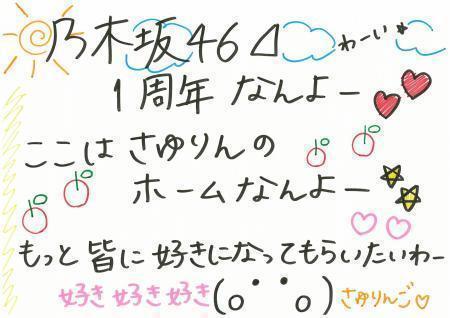 乃木坂46⊿ わーい★
1周年 なんよー
ここは さゆりんの
ホームなんよー
もっと 皆に 好きになってもらいたいわー
好き 好き 好き (o˙˙o) さゆりんご♡